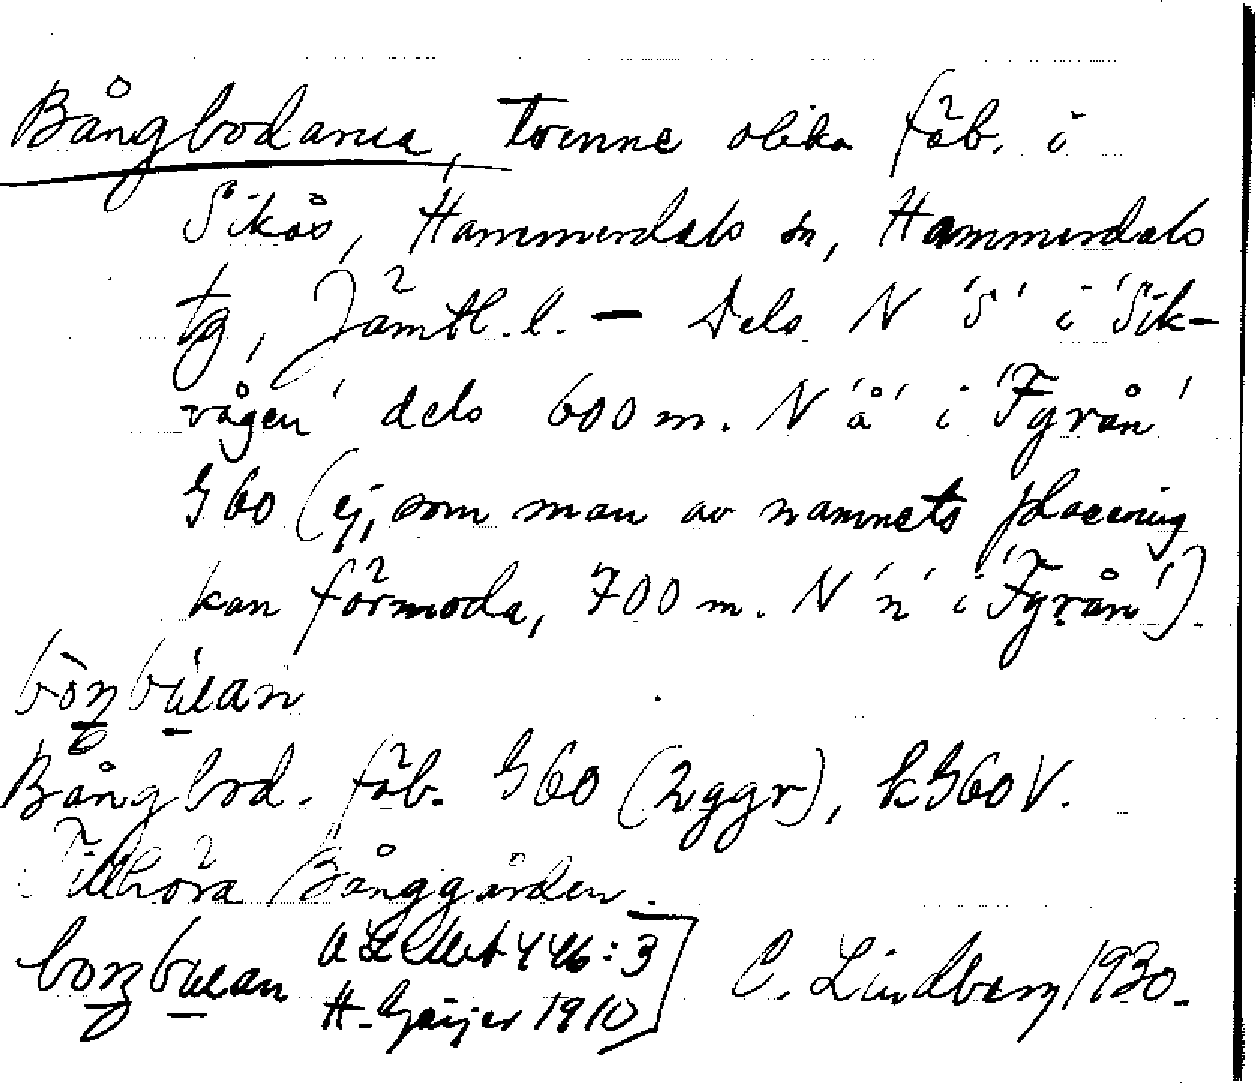 Bångbodarna, tvenne olika fäb. i
Sikås, Hammerdals sn, Hammerdals
tg, Jämtl. l. — Dels N 'S' i 'Sik-
vågen' dels 600 m. N 'å' i 'Fyrån'
G60 (ej, som man av namnets placering
kan förmoda, 700 m. N 'n' i 'Fyrån')
Bångbod. fäb. G60 (2 ggr), kG60V.
Tillhöra Bånggården.
446:3
H. Geijer 1910] C. Lindberg 1930.